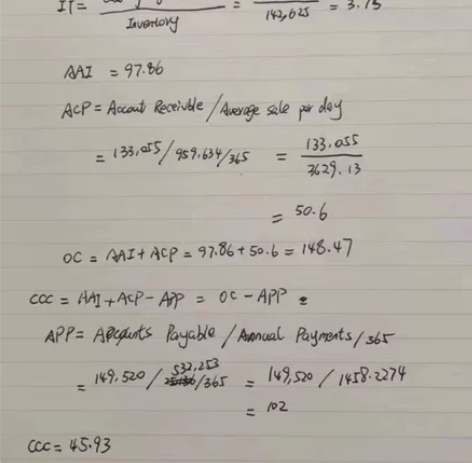 IT = ――― = ――― = 3.75
Inventory 142,625
AAI = 97.86
ACP = Accout Receivble / Average sale per day
= 133,055 / 959.634 / 365 = 133,055 / 3629.13
= 50.6
OC = AAI + ACP = 97.86 + 50.6 = 148.47
CCC = AAI + ACP - APP = OC - APP
APP = Accounts Payable / Annual Payments / 365
= 149,520 / 532,253 / 365 = 149,520 / 1458.2274
= 102
CCC = 45.93